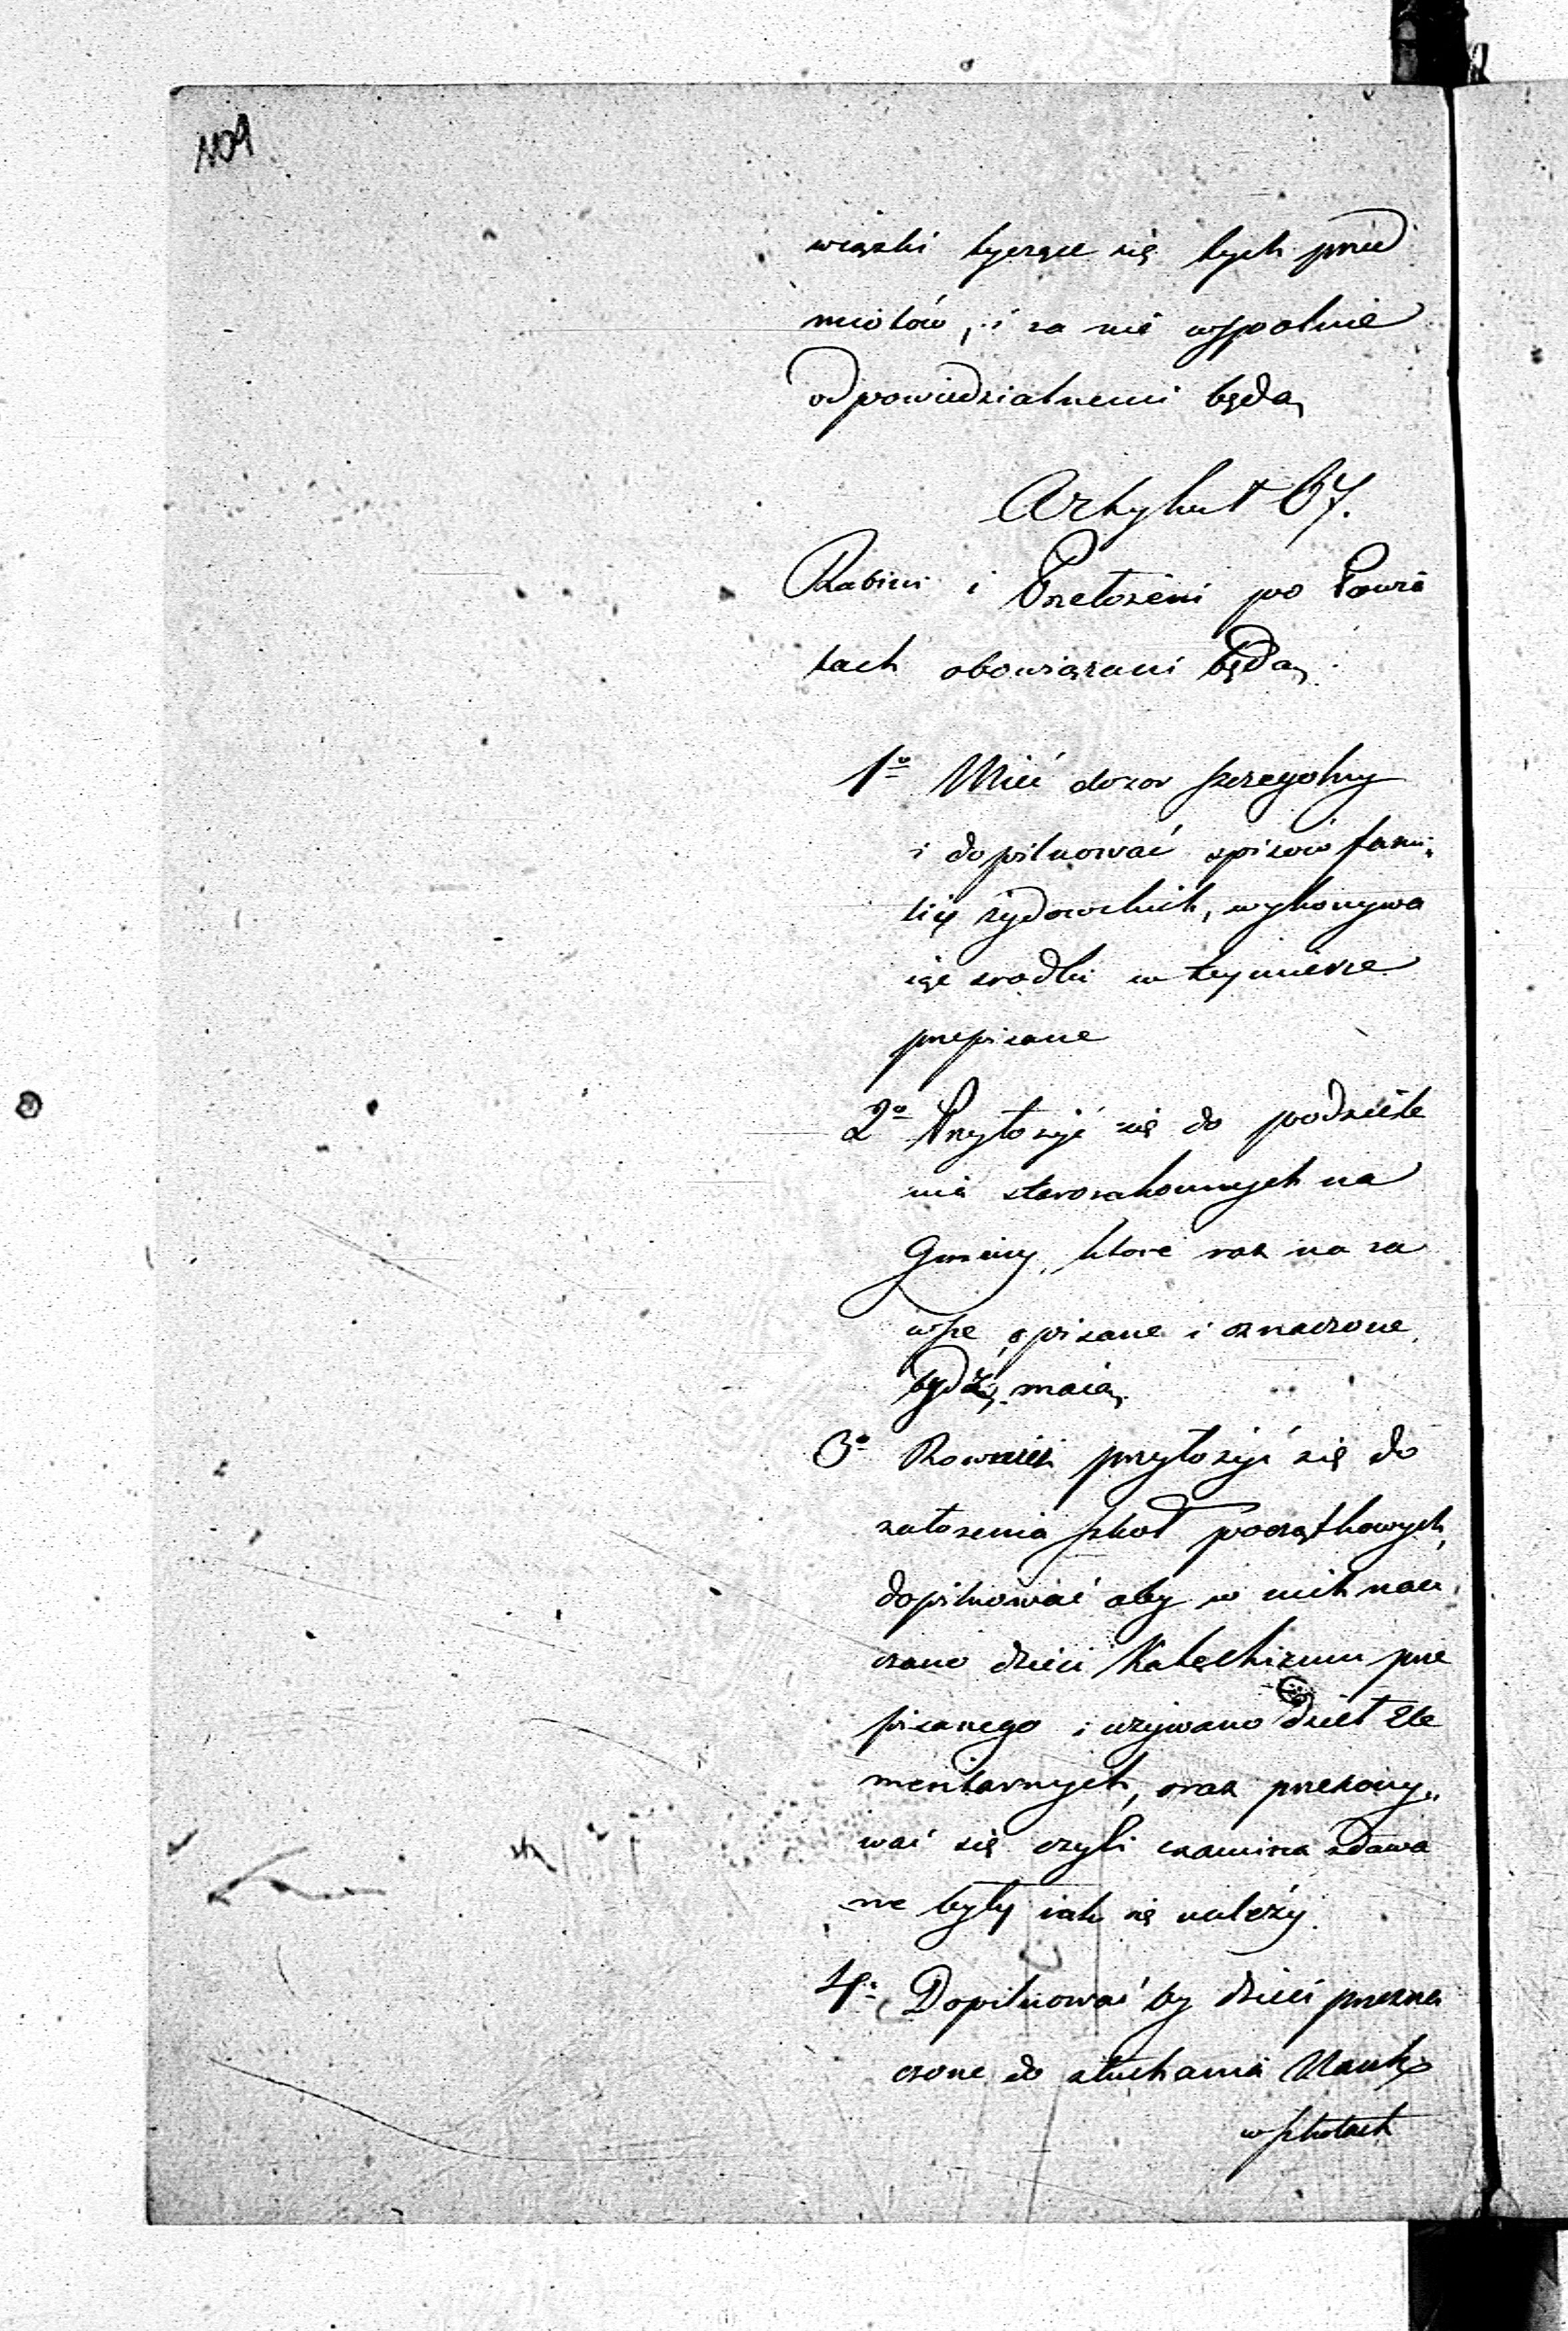 109
wiązki tyczące się tych przed
miotów, i za nie wspolnie
odpowiedzialnemi będą
Artykuł 67.
Rabini i Przełożeni po Powia
tach obowiązani będą
1º Mieć dozor szczegolny
i dopilnować spisów fami„
lię żydowskich, wykonywa
iąc srodki w tey mierze
przepisane
2º Przyłożyć się do podziele
nia starozakonnych na
Gminy, ktore raz na za
wsze opisane i oznaczone
bydź maią,
3º Rownież przyłożyć się do
założenia szkoł początkowych,
dopilnować aby w nich nau
czano dzieci Katechizmu prze
pisanego i używano dzieł Ele
mentarnych, oraz przekony„
wać się czyli examina zdawa
ne były iak się należy.
4º Dopilnować by dzieci przezna
czone do słuchania Nauk
w szkołach